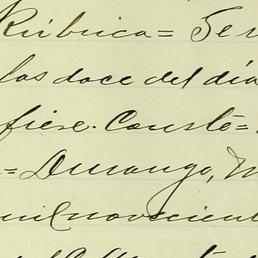 Rúbrica = Ser
las doce del día
fiere. Conste =
= Durango, M
mil novecient